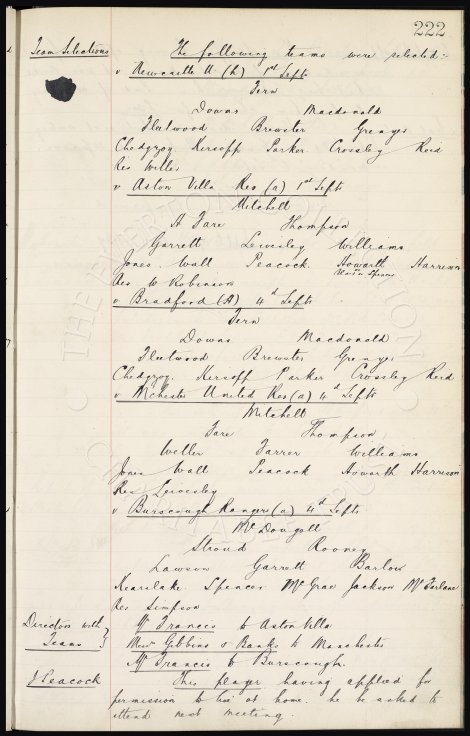 222
Team Selections The following teams were selected:-
v Newcastle U (h) 1st Sept
Fern
Downs Macdonald
Fleetwood Brewster Grenyer
Chedgzoy Kirsopp Parker Crossley Reid
Res Weller
v Aston Villa Res (a) 1st Sept
Mitchell
A Fare Thompson
Garrett Lewisley Williams
Jones Wall Peacock Howarth Harrison
Res W Robinson
v Bradford (A) 4th Sept
Fern
Downs Macdonald
Fleetwood Brewster Grenyer
Chedgzoy Kirsopp Parker Crossley Reid
v Mchester United Res (a) 4th Sept
Mitchell
Fare Thompson
Weller Farrer Williams
Jones Wall Peacock Howarth Harrison
Res Lewesley
v Burscough Rangers (a) 4th Sept
McDougall
Stroud Rooney
Lawson Garrett Barlow
Spencer McGrae Jackson McFarlane
Res Simpson
Directors with Mr Francis to Aston Villa
Teams } Messrs Gibbins & Banks to Manchester
Mr Francis to Burscough.
J Peacock This player having applied for
permission to live at home. he be asked to
attend next meeting.